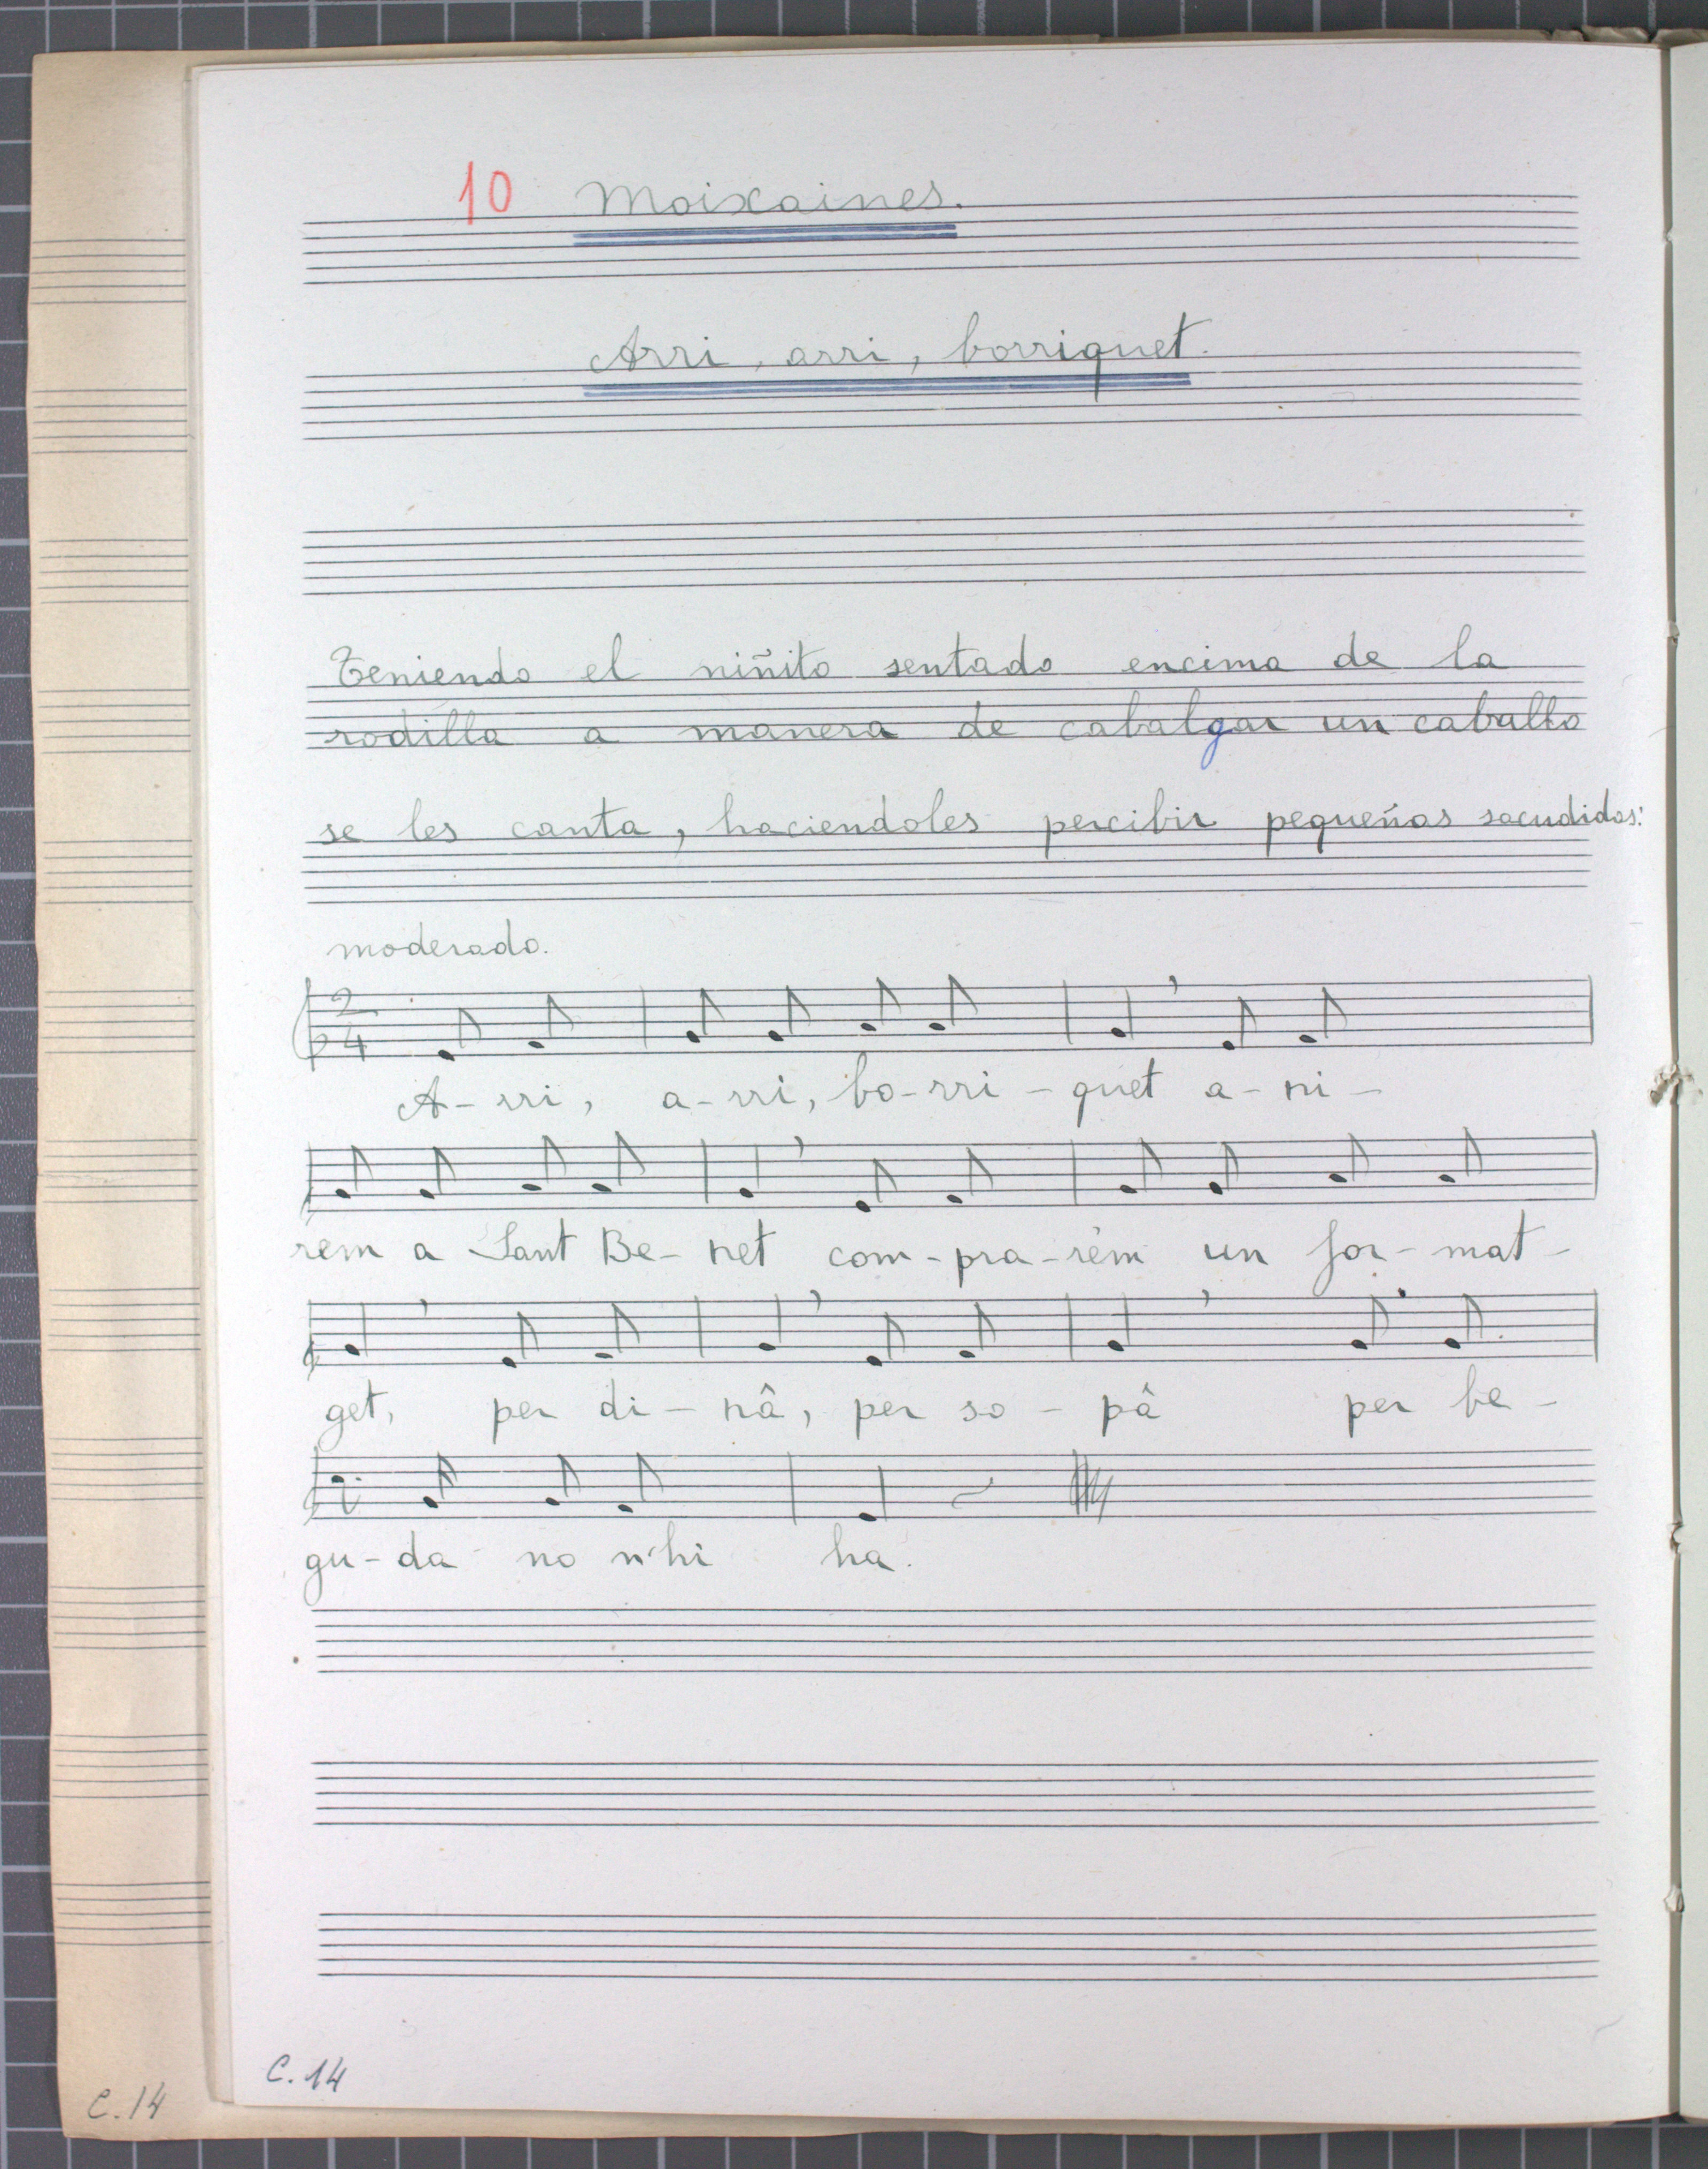 10 Moixaines.
Arri, arri, borriquet.
Teniendo el niñito sentado encima de la
rodilla a manera de cabalgar un caballo
se les canta, haciendoles percibir pequeñas sacudidas:
moderado.
2
4
A- rri, a-rri, bo-rri - quet a - ni -
rem a Sant Be- net com-pra-rém un for- mat -
get, per di - nâ, per so - pâ per be -
gu-da no n'hi ha.
C. 14
C. 14